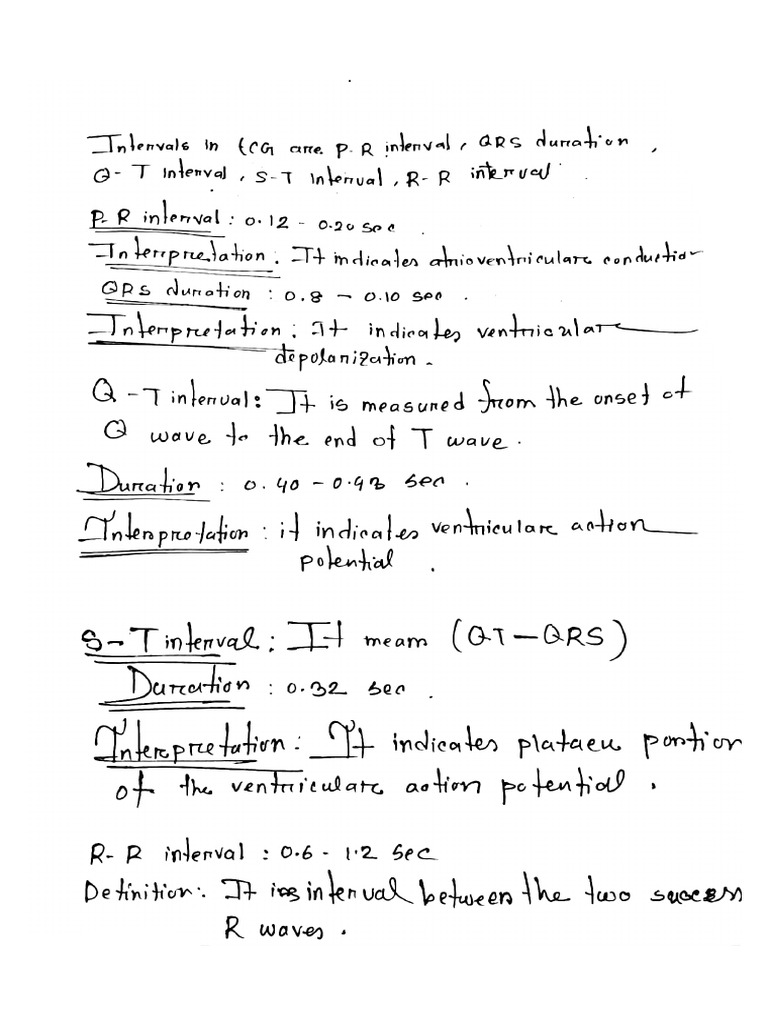 Intervals in ECG are P-R interval, QRS duration,
Q-T Interval, S-T Interval, R-R interval
P-R interval: 0.12 - 0.20 sec.
Interpretation: It indicates atrioventricular conduction
QRS duration : 0.8 - 0.10 sec.
Interpretation: It indicates ventricular
depolarization.
Q-T interval: It is measured from the onset of
Q wave to the end of T wave.
Duration : 0.40 - 0.43 sec.
Interpretation : it indicates ventricular action
potential.
S-T interval: It mean (QT-QRS)
Duration : 0.32 sec.
Interpretation: It indicates plataeu portion
of the ventricular action potential.
R-R interval : 0.6 - 1.2 sec
Definition: It is interval between the two success
R waves.